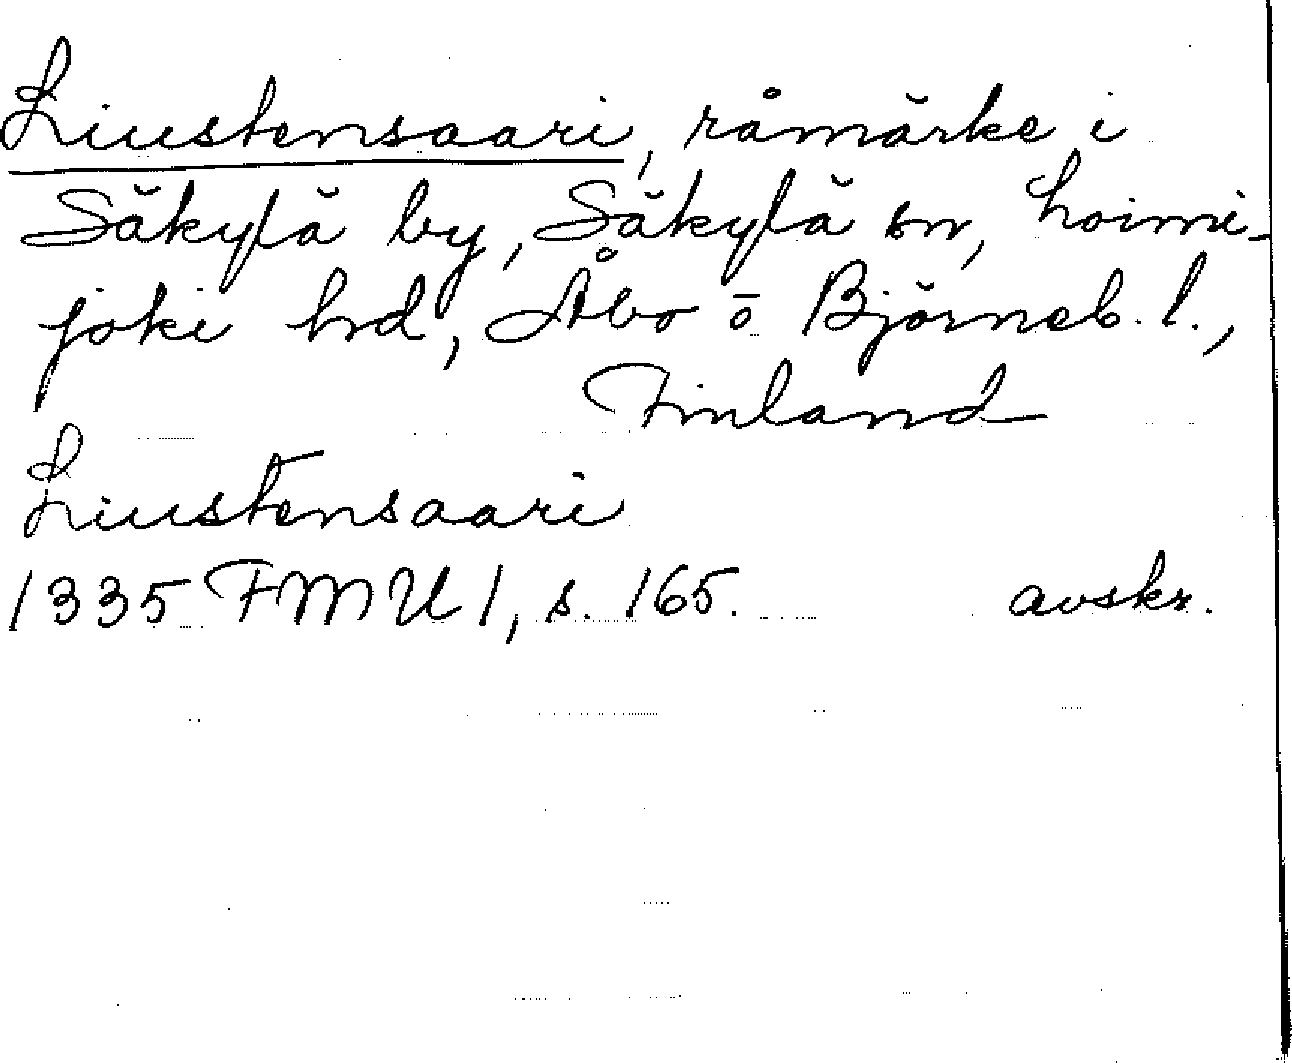 Liustensaari, råmärke i
Säkylä by, Säkylä sn, Loimi-
joki hd, Åbo o Björneb. l.,
Finland
Liustensaari
1335 FMU 1, s. 165. avskr.